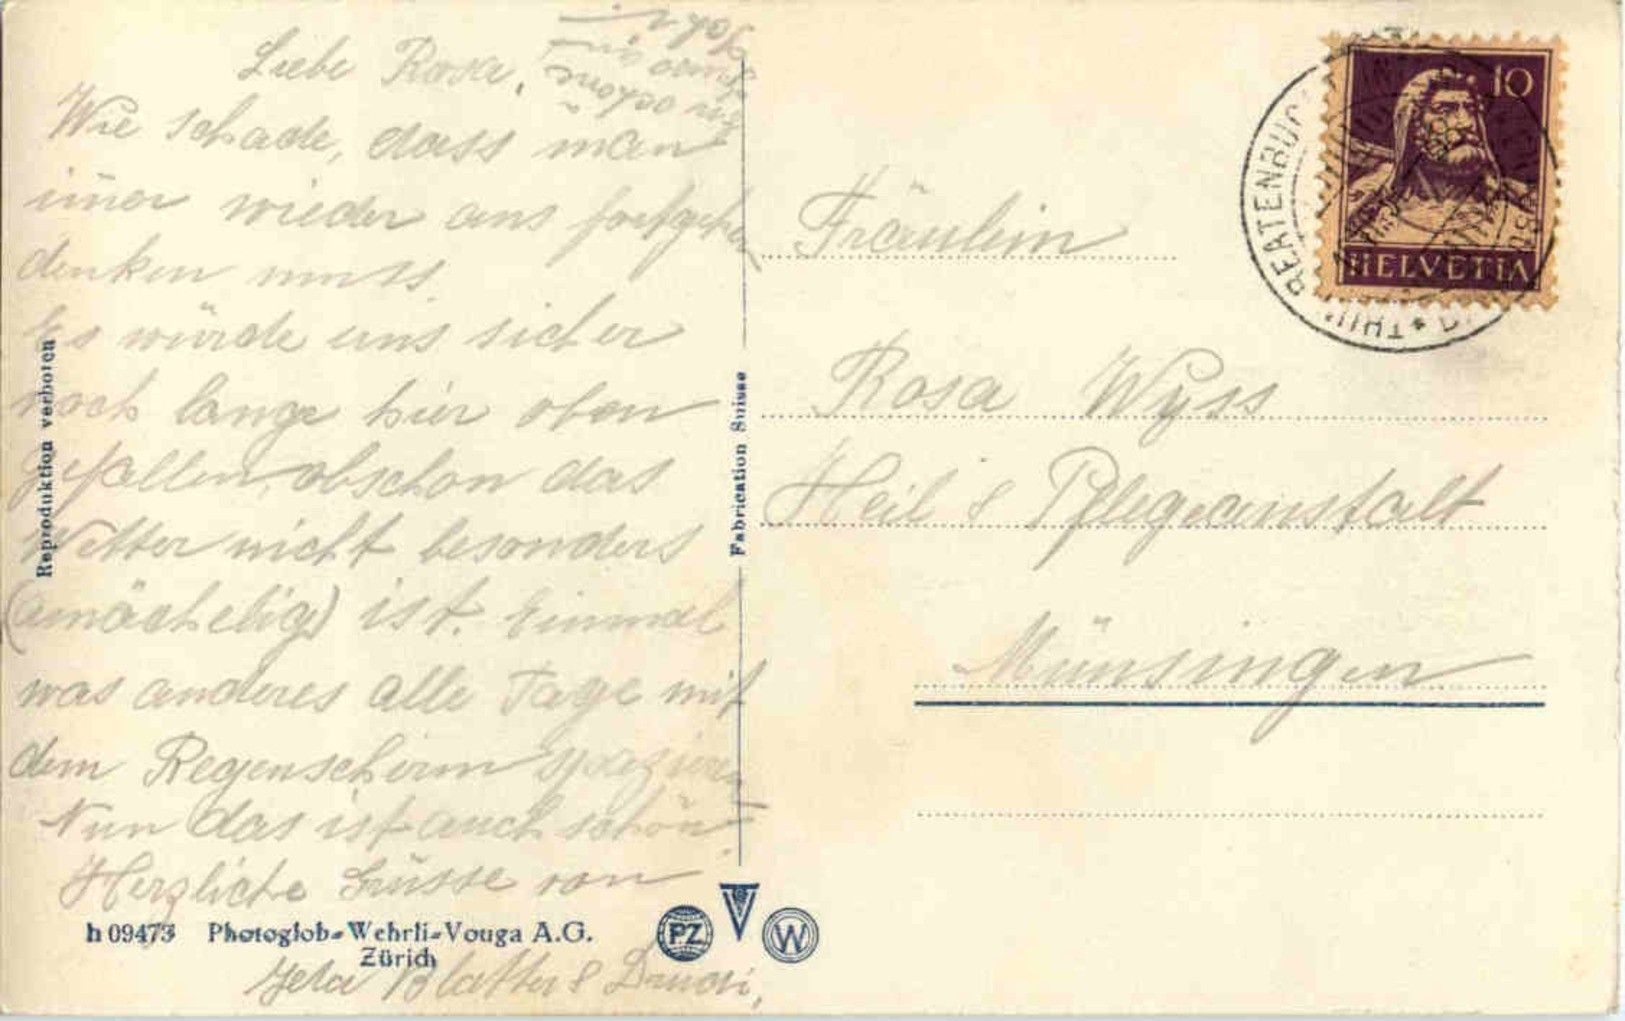 Liebe Rosa,
Wie schade, dass man
im̅er wieder ans fortgehen
denken muss.
Es würde uns sicher
noch lange hier oben
gefallen, obschon das
Wetter nicht besonders
(amächelig) ist. Einmal
was anderes alle Tage mit
dem Regenschirm spazieren
Nun das ist auch schön.
Herzliche Grüsse von
Blatter & Drucri,
Reproduktion verboten
h 09473 Photoglob-Wehrli-Vouga A.G.
Zürich
PZ
V
W
Fabrication Suisse
Fräulein
Rosa Wyss
Heil & Pflegeanstalt
Münsingen
10
HELVETIA
BEATENBUCHT